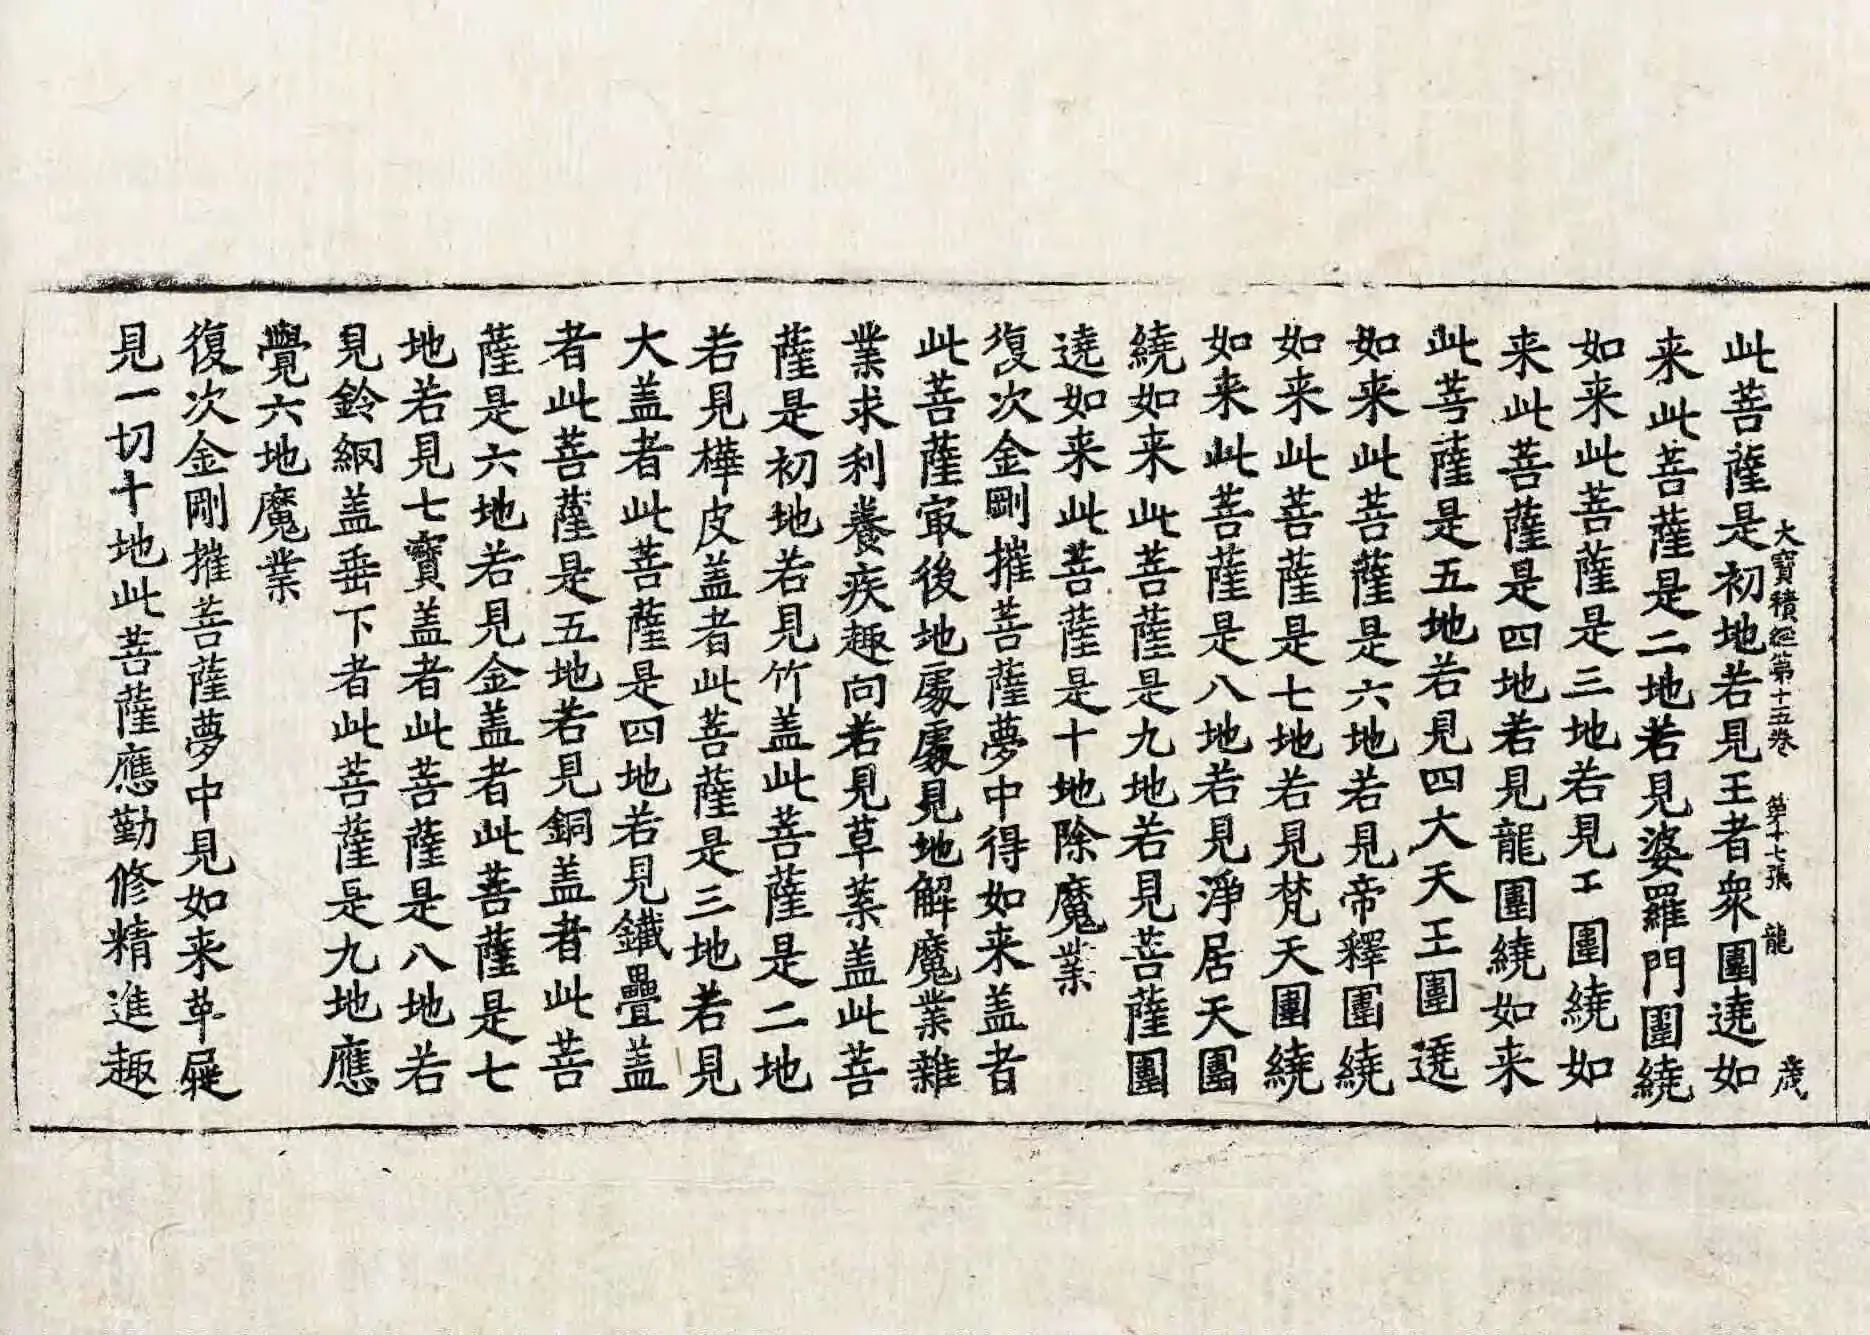 大寶積經第十五卷　第十七張　龍　歲
此菩薩是初地若見王者衆圍遶如
来此菩薩是二地若見婆羅門圍繞
如来此菩薩是三地若見工圍繞如
来此菩薩是四地若見龍圍繞如来
此菩薩是五地若見四大天王圍遶
如来此菩薩是六地若見帝釋圍繞
如来此菩薩是七地若見梵天圍繞
如来此菩薩是八地若見淨居天圍
繞如来此菩薩是九地若見菩薩圍
遶如来此菩薩是十地除魔業
復次金剛摧菩薩夢中得如来盖者
此菩薩㝡後地處處見地解魔業雜
業求利養疾趣向若見草葉盖此菩
薩是初地若見竹盖此菩薩是二地
若見樺皮盖者此菩薩是三地若見
大盖者此菩薩是四地若見鐵疊盖
者此菩薩是五地若見銅盖者此菩
薩是六地若見金盖者此菩薩是七
地若見七寶盖者此菩薩是八地若
見鈴網盖垂下者此菩薩是九地應
覺六地魔業
復次金剛摧菩薩夢中見如来革屣
見一切十地此菩薩應勤修精進趣